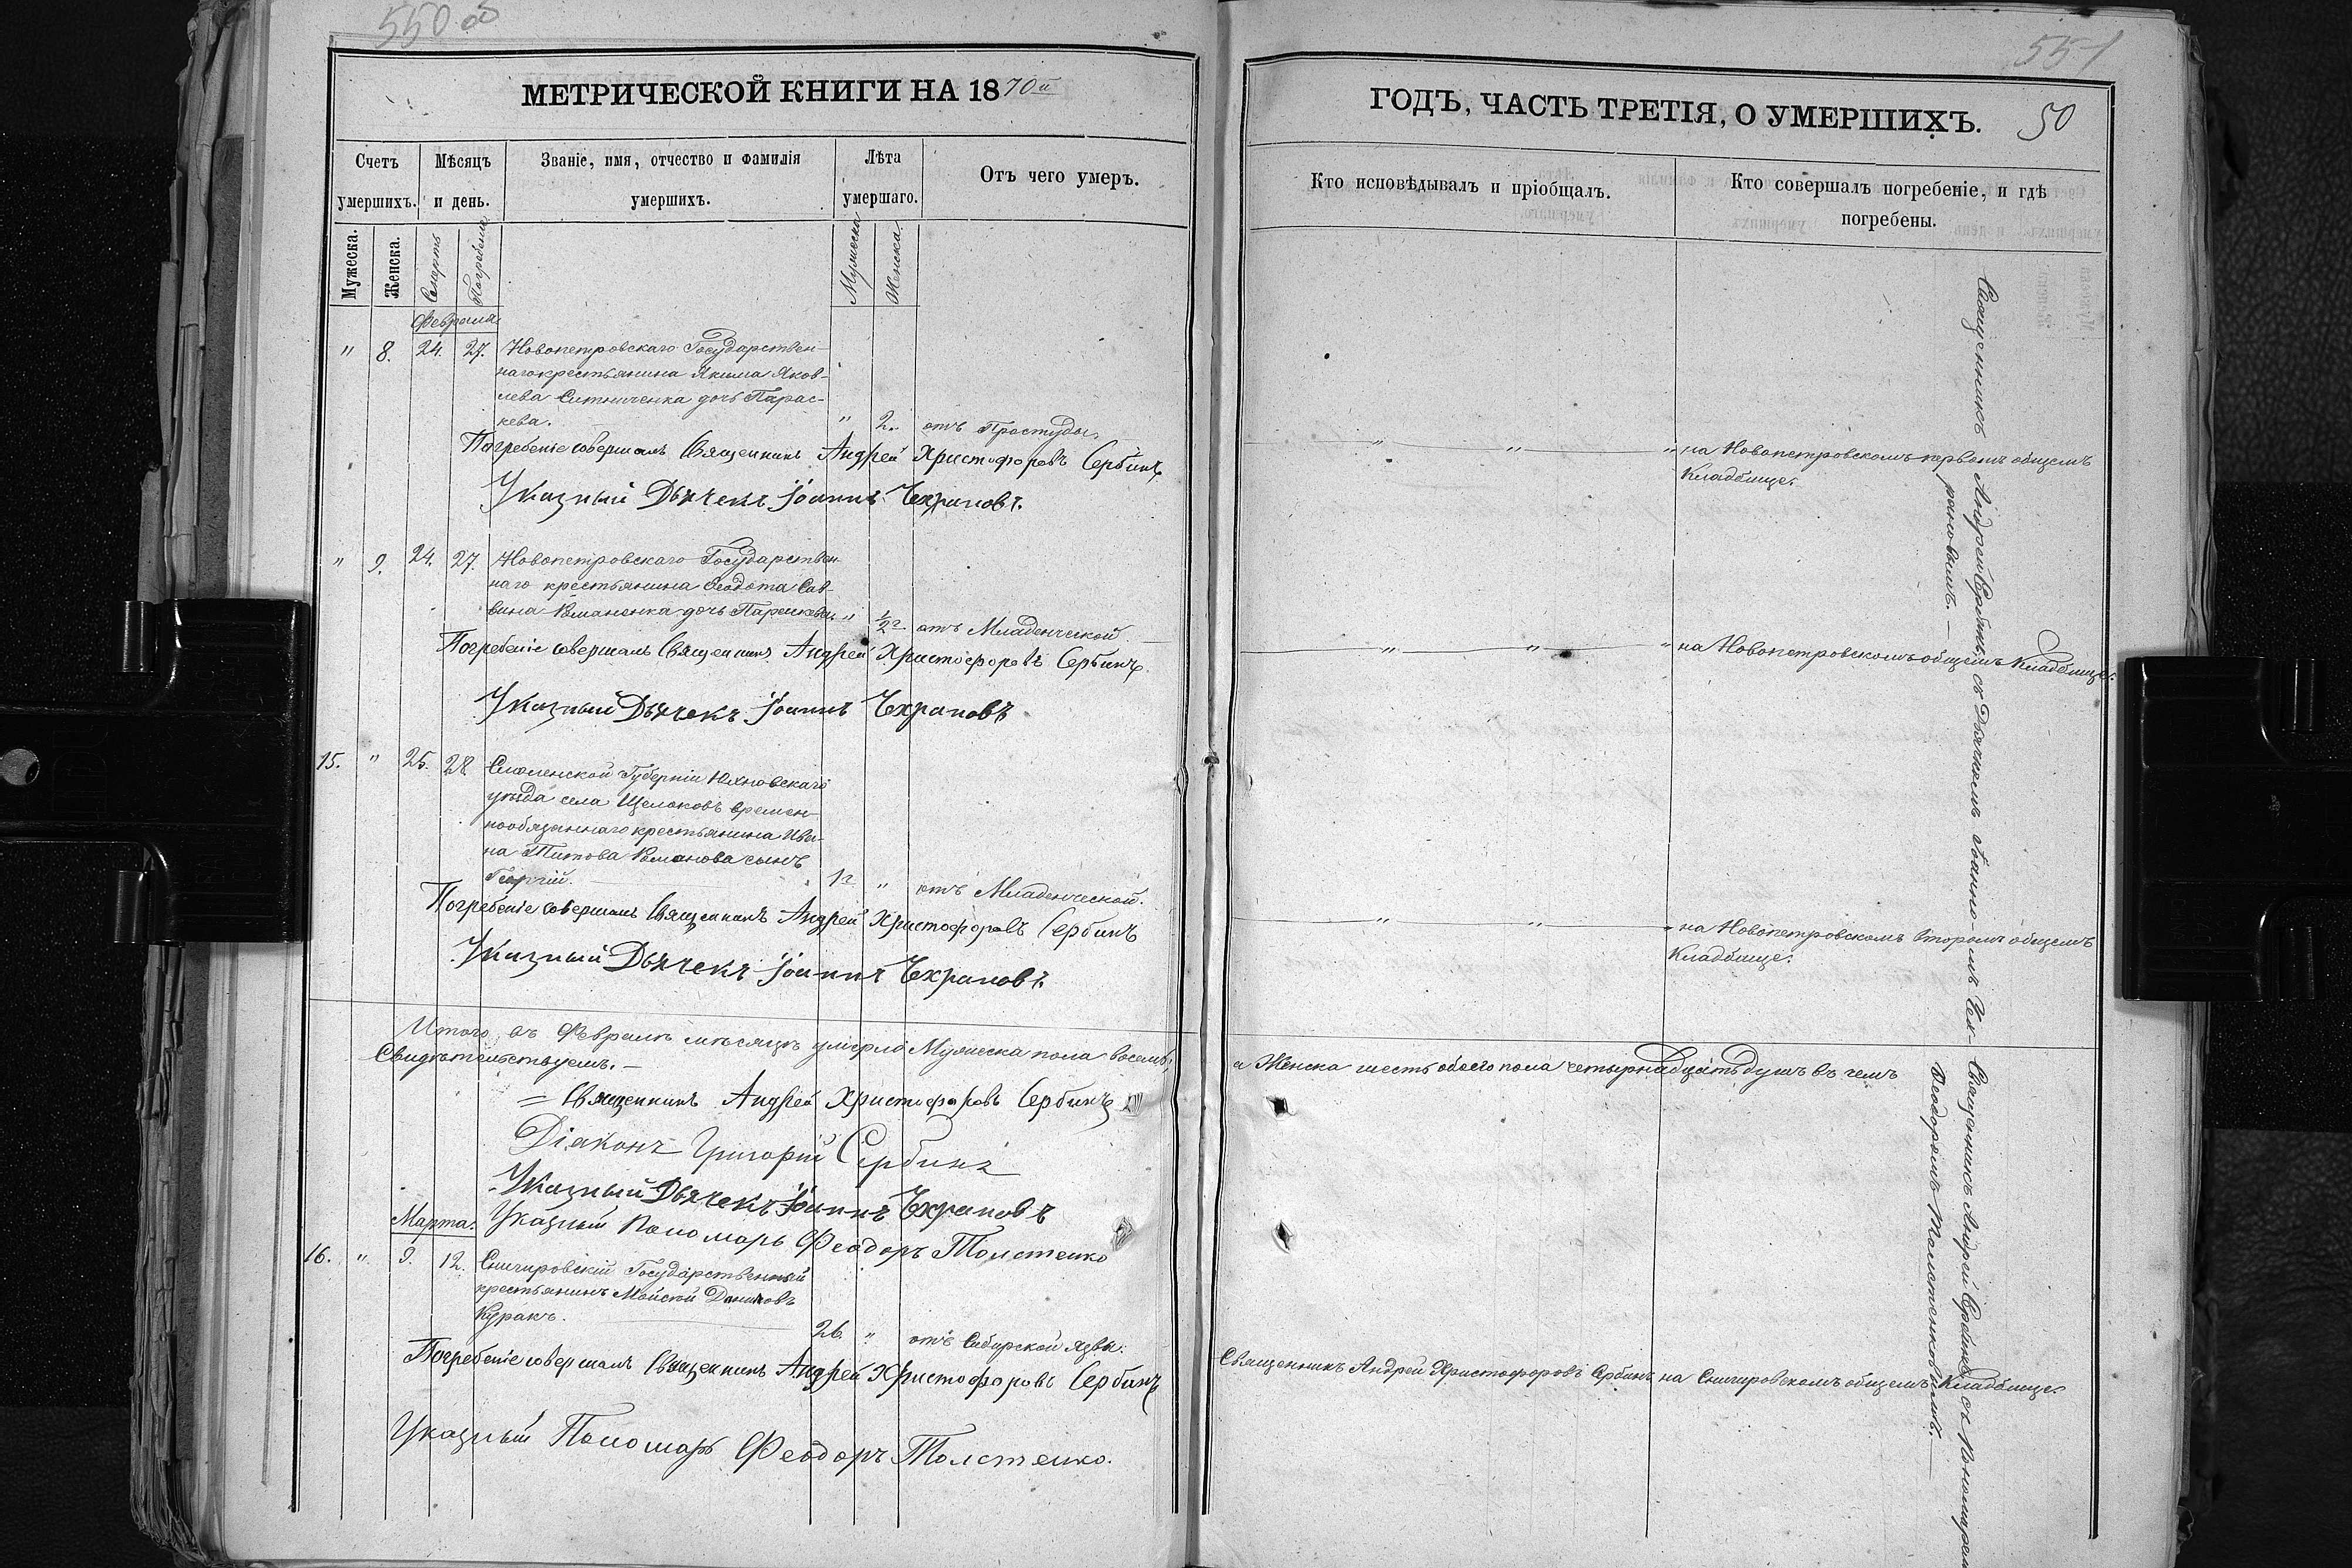 550 об
МЕТРИЧЕСКОЙ КНИГИ НА 1870й
Счетъ умершихъ.
Мѣсяцъ и день.
Званіе, имя, отчество и фамилія умершихъ.
Лѣта умершаго.
Отъ чего умеръ.
Мужеска.
Женска.
Смерть
Погребеніе
Мужеска
Женска
Февраля
" 8. 24. 27. Новопетровскаго Государствен-
наго крестьянина Якима Яков-
лева Ситниченка дочь Парас-
кева. " 2. отъ Простуды.
Погребеніе совершалъ Священникъ Андрей Христофоровъ Сербинъ
Указный Дьячекъ Іоаннъ Чехрановъ.
" 9. 24. 27. Новопетровскаго Государствен
наго крестьянина Ѳеодота Сав-
вина Романенка дочь Параскева. " 1/2 г. отъ Младенческой.
Погребеніе совершалъ Священникъ Андрей Христофоровъ Сербинъ.
Указный Дьячекъ Іоаннъ Чехрановъ
15. " 25. 28 Смоленской Губерніи Юхновскаго
уѣзда села Щелоковъ времен-
нообязаннаго крестьянина Ива-
на Титова Романова сынъ
Георгій. 1 г. " отъ Младенческой.
Погребеніе совершалъ Священникъ Андрей Христофоровъ Сербинъ
Указный Дьячекъ Іоаннъ Чехрановъ.
Итого въ Февралѣ мѣсяцѣ умерло Мужеска пола восемь,
Свидѣтельствуемъ.
Священникъ Андрей Христофоровъ Сербинъ
Діаконъ Григорій Сербинъ
Указный Дьячекъ Іоаннъ Чехрановъ
Указный Пономарь Феодоръ Толстенко
Марта.
16. " 9. 12. Снигировскій Государственный
крестьянинъ Моисей Даниловъ
Куракъ. 26. " отъ Сибирской язвы.
Погребеніе совершалъ Священникъ Андрей Христофоровъ Сербинъ
Указный Пономарь Феодоръ Толстенко.
551
ГОДЪ, ЧАСТЬ ТРЕТІЯ, О УМЕРШИХЪ.
50
Кто исповѣдывалъ и пріобщалъ.
Кто совершалъ погребеніе, и гдѣ погребены.
" " " на Новопетровскомъ первомъ общемъ
Кладбище.
" " " на Новопетровскомъ общемъ Кладбище.
" " " на Новопетровскомъ второмъ общемъ
Кладбище.
а Женска шесть обоего пола четырнадцать душъ въ чемъ
Священникъ Андрей Христофоровъ Сербинъ на Снигировскомъ общемъ Кладбище.
Священникъ Андрей Сербинъ, съ Дьячкомъ Іоанно-мъ Чех-
рановымъ.
Священникъ Андрей Сербинъ съ Пономарем
Ѳеодоромъ Толстенковымъ.